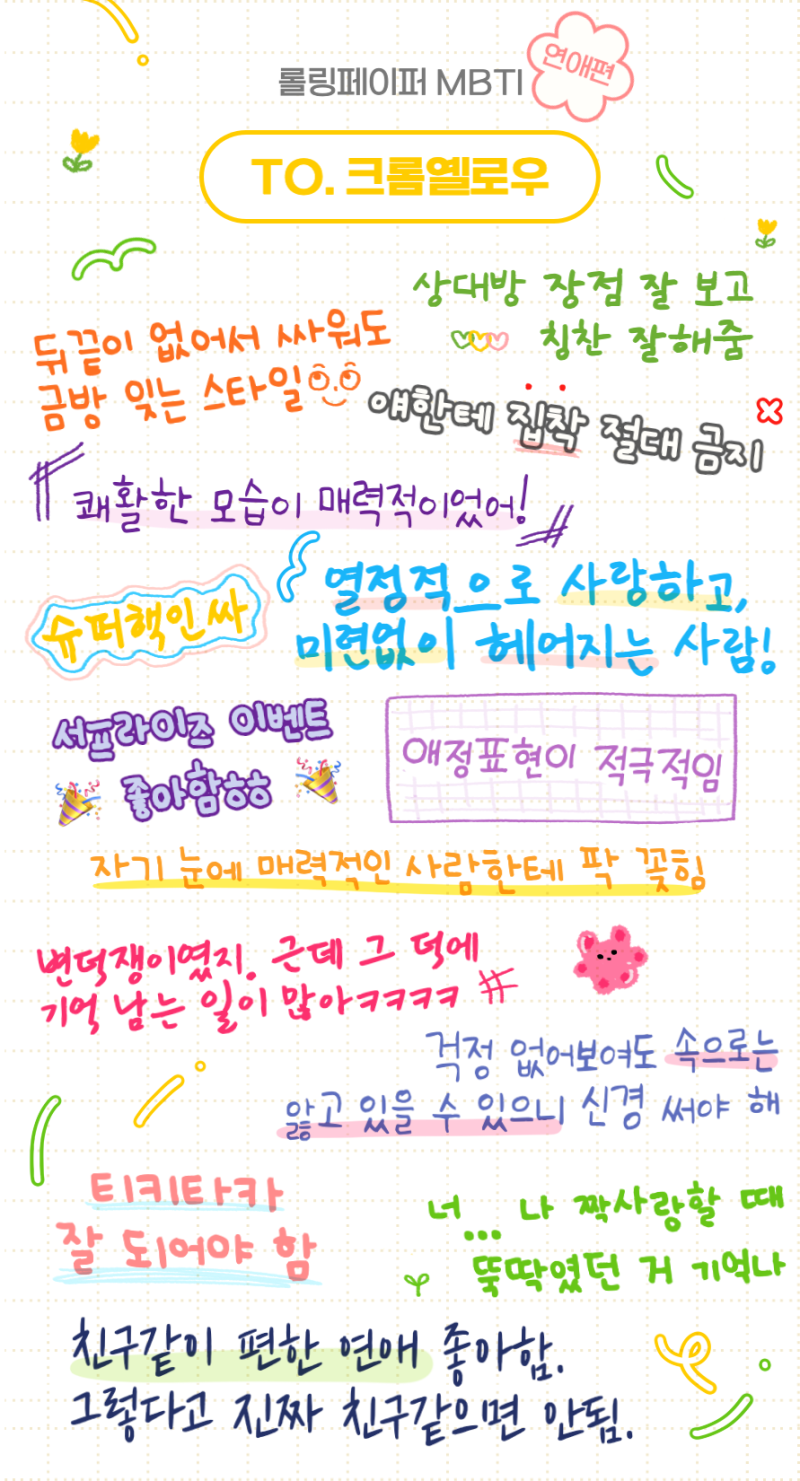 롤링페이퍼 MBTI
연애편
TO. 크롬옐로우
상대방 장점 잘 보고
칭찬 잘해줌
뒤끝이 없어서 싸워도
금방 잊는 스타일
얘한테 집착 절대 금지
쾌활한 모습이 매력적이었어!
슈퍼핵인싸
열정적으로 사랑하고,
미련없이 헤어지는 사람!
서프라이즈 이벤트
좋아함ㅎㅎ
애정표현이 적극적임
자기 눈에 매력적인 사람한테 팍 꽂힘
변덕쟁이였지. 근데 그 덕에
기억 남는 일이 많아ㅋㅋㅋㅋ
걱정 없어보여도 속으로는
앓고 있을 수 있으니 신경 써야 해
티키타카
잘 되어야 함
너... 나 짝사랑할 때
뚝딱였던 거 기억나
친구같이 편한 연애 좋아함.
그렇다고 진짜 친구같으면 안됨.